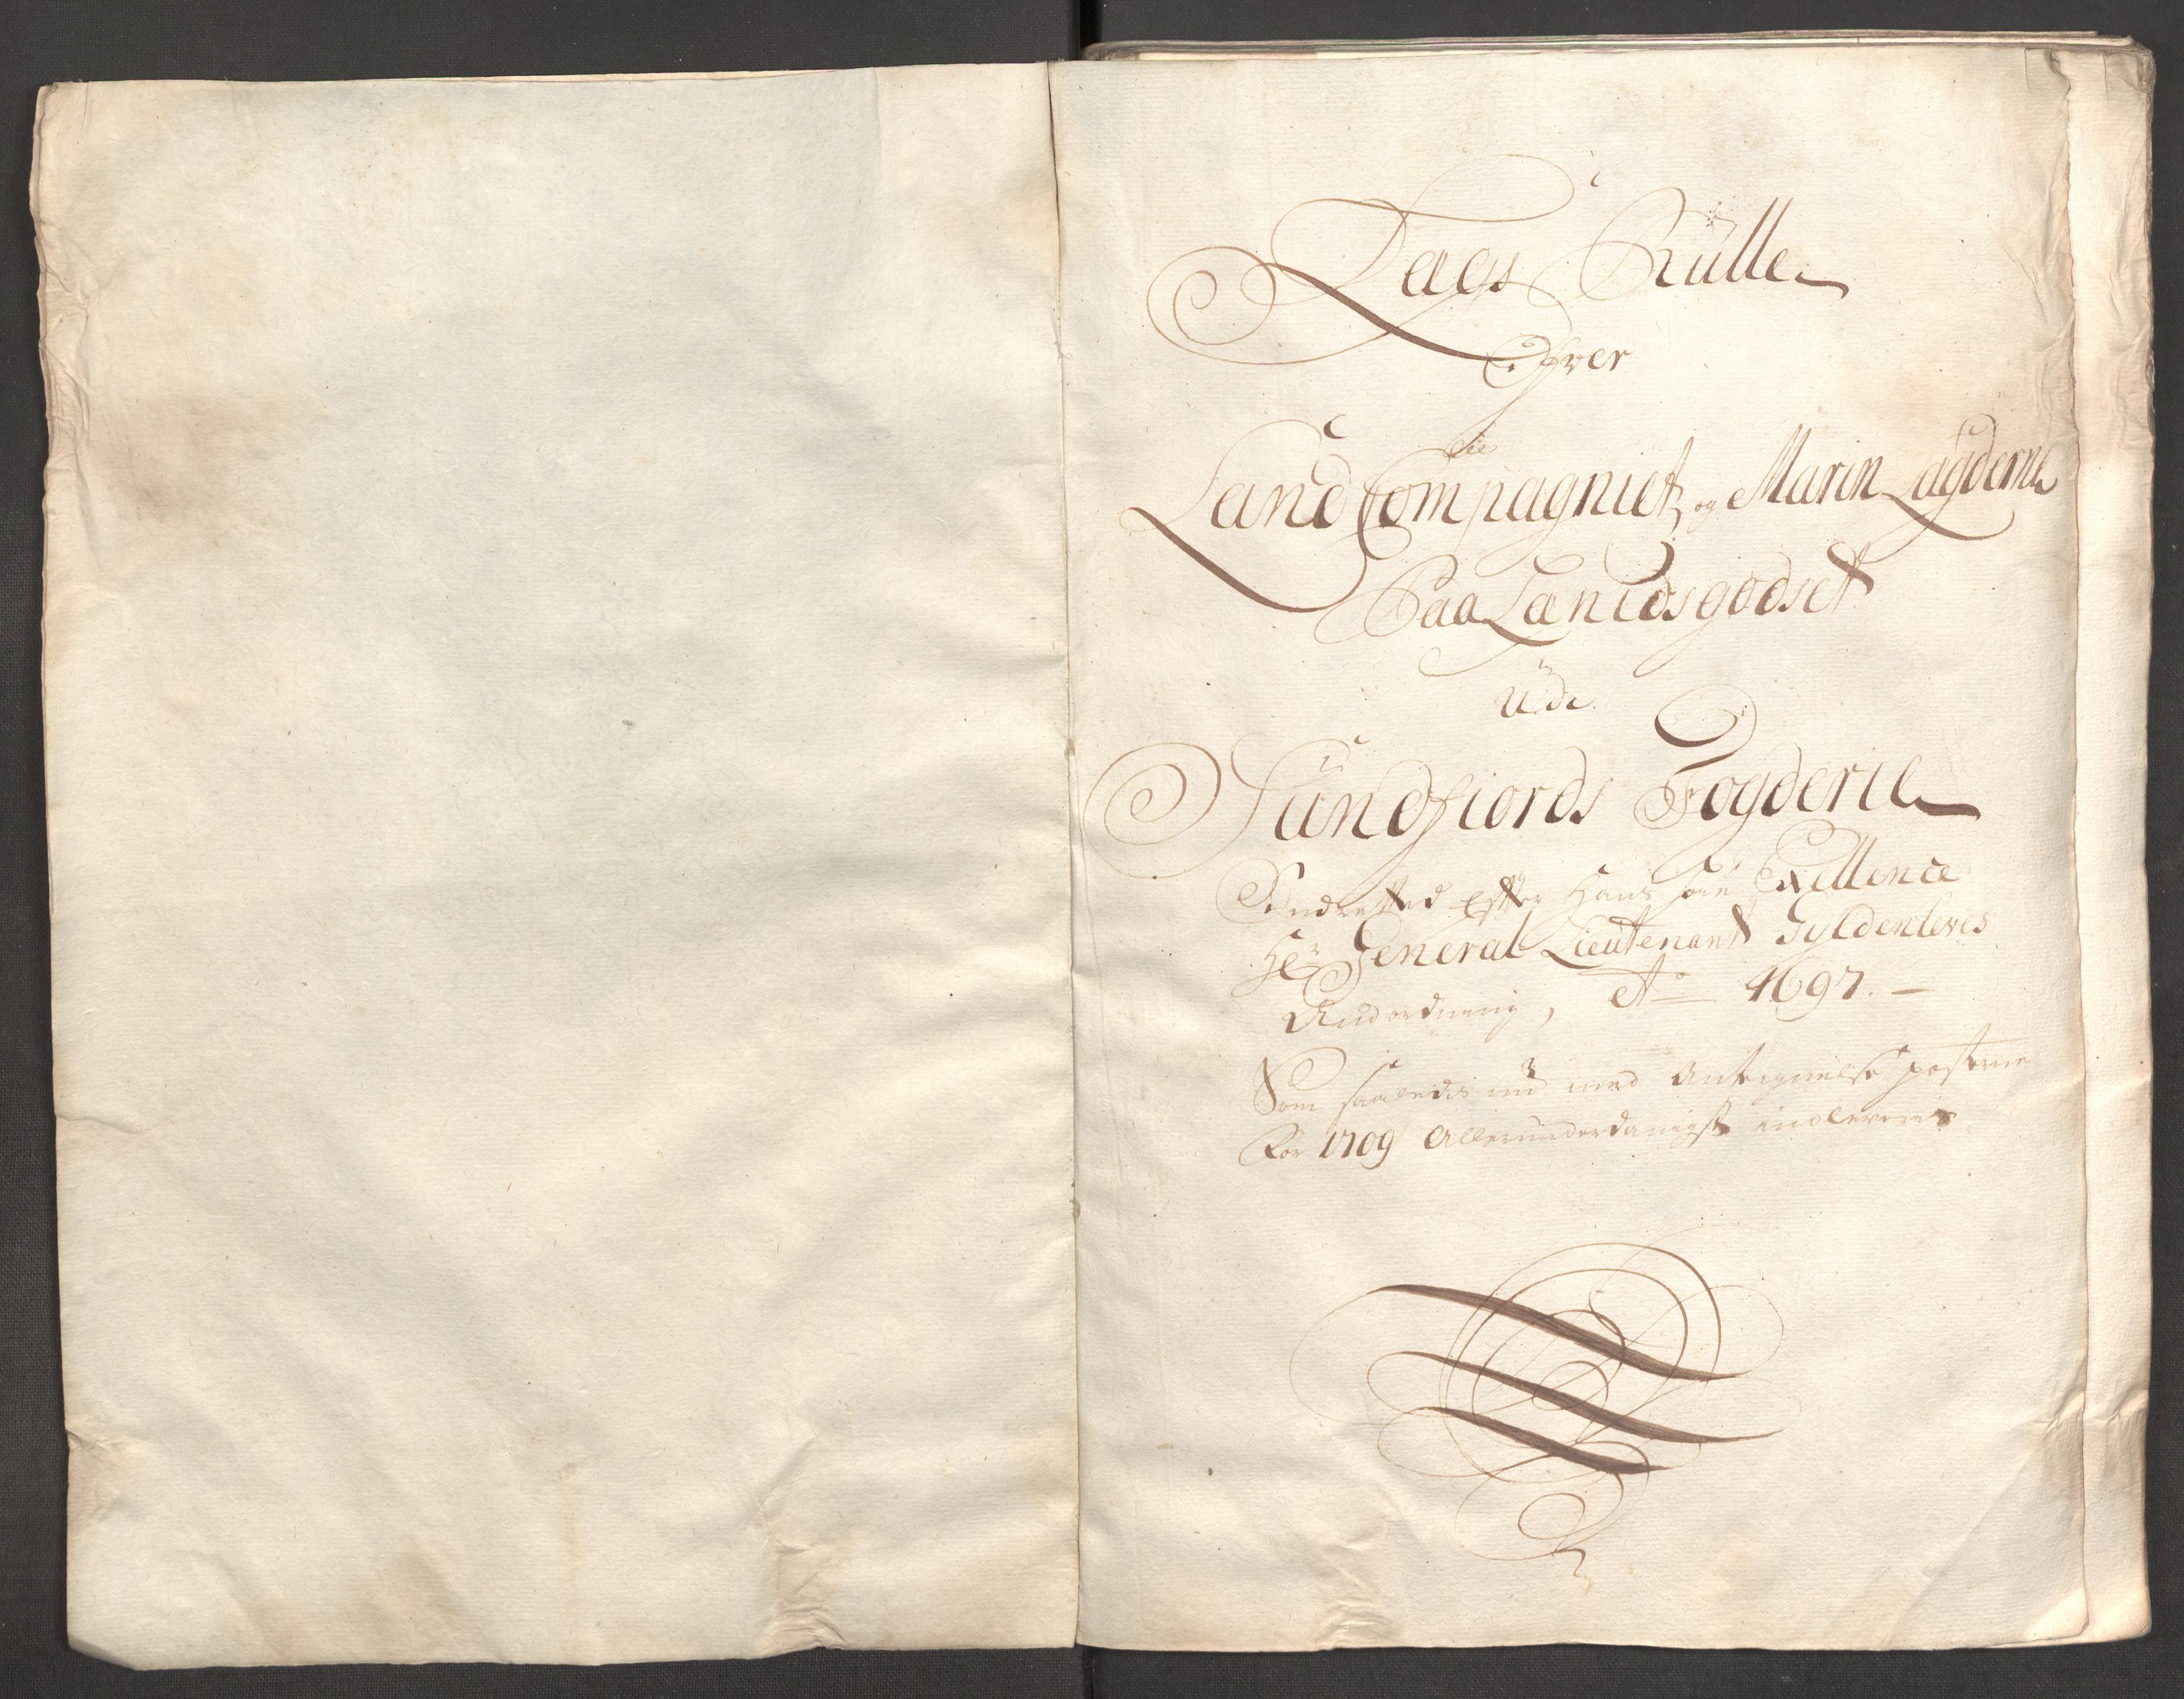 Laegs Rulle
Ofver
die
Land Compagniet og Marin Lægderne
Paa Landsgodset
Udi
Sundfiords Fogderie
Indrettet efter Hans høie Exellence
Hr General Lieutenant Gyldenleves
Anordning, Ao 1697.
Som saaledis nu med Antegnelse posterne
For 1709 Allerunderdanigst indleveris